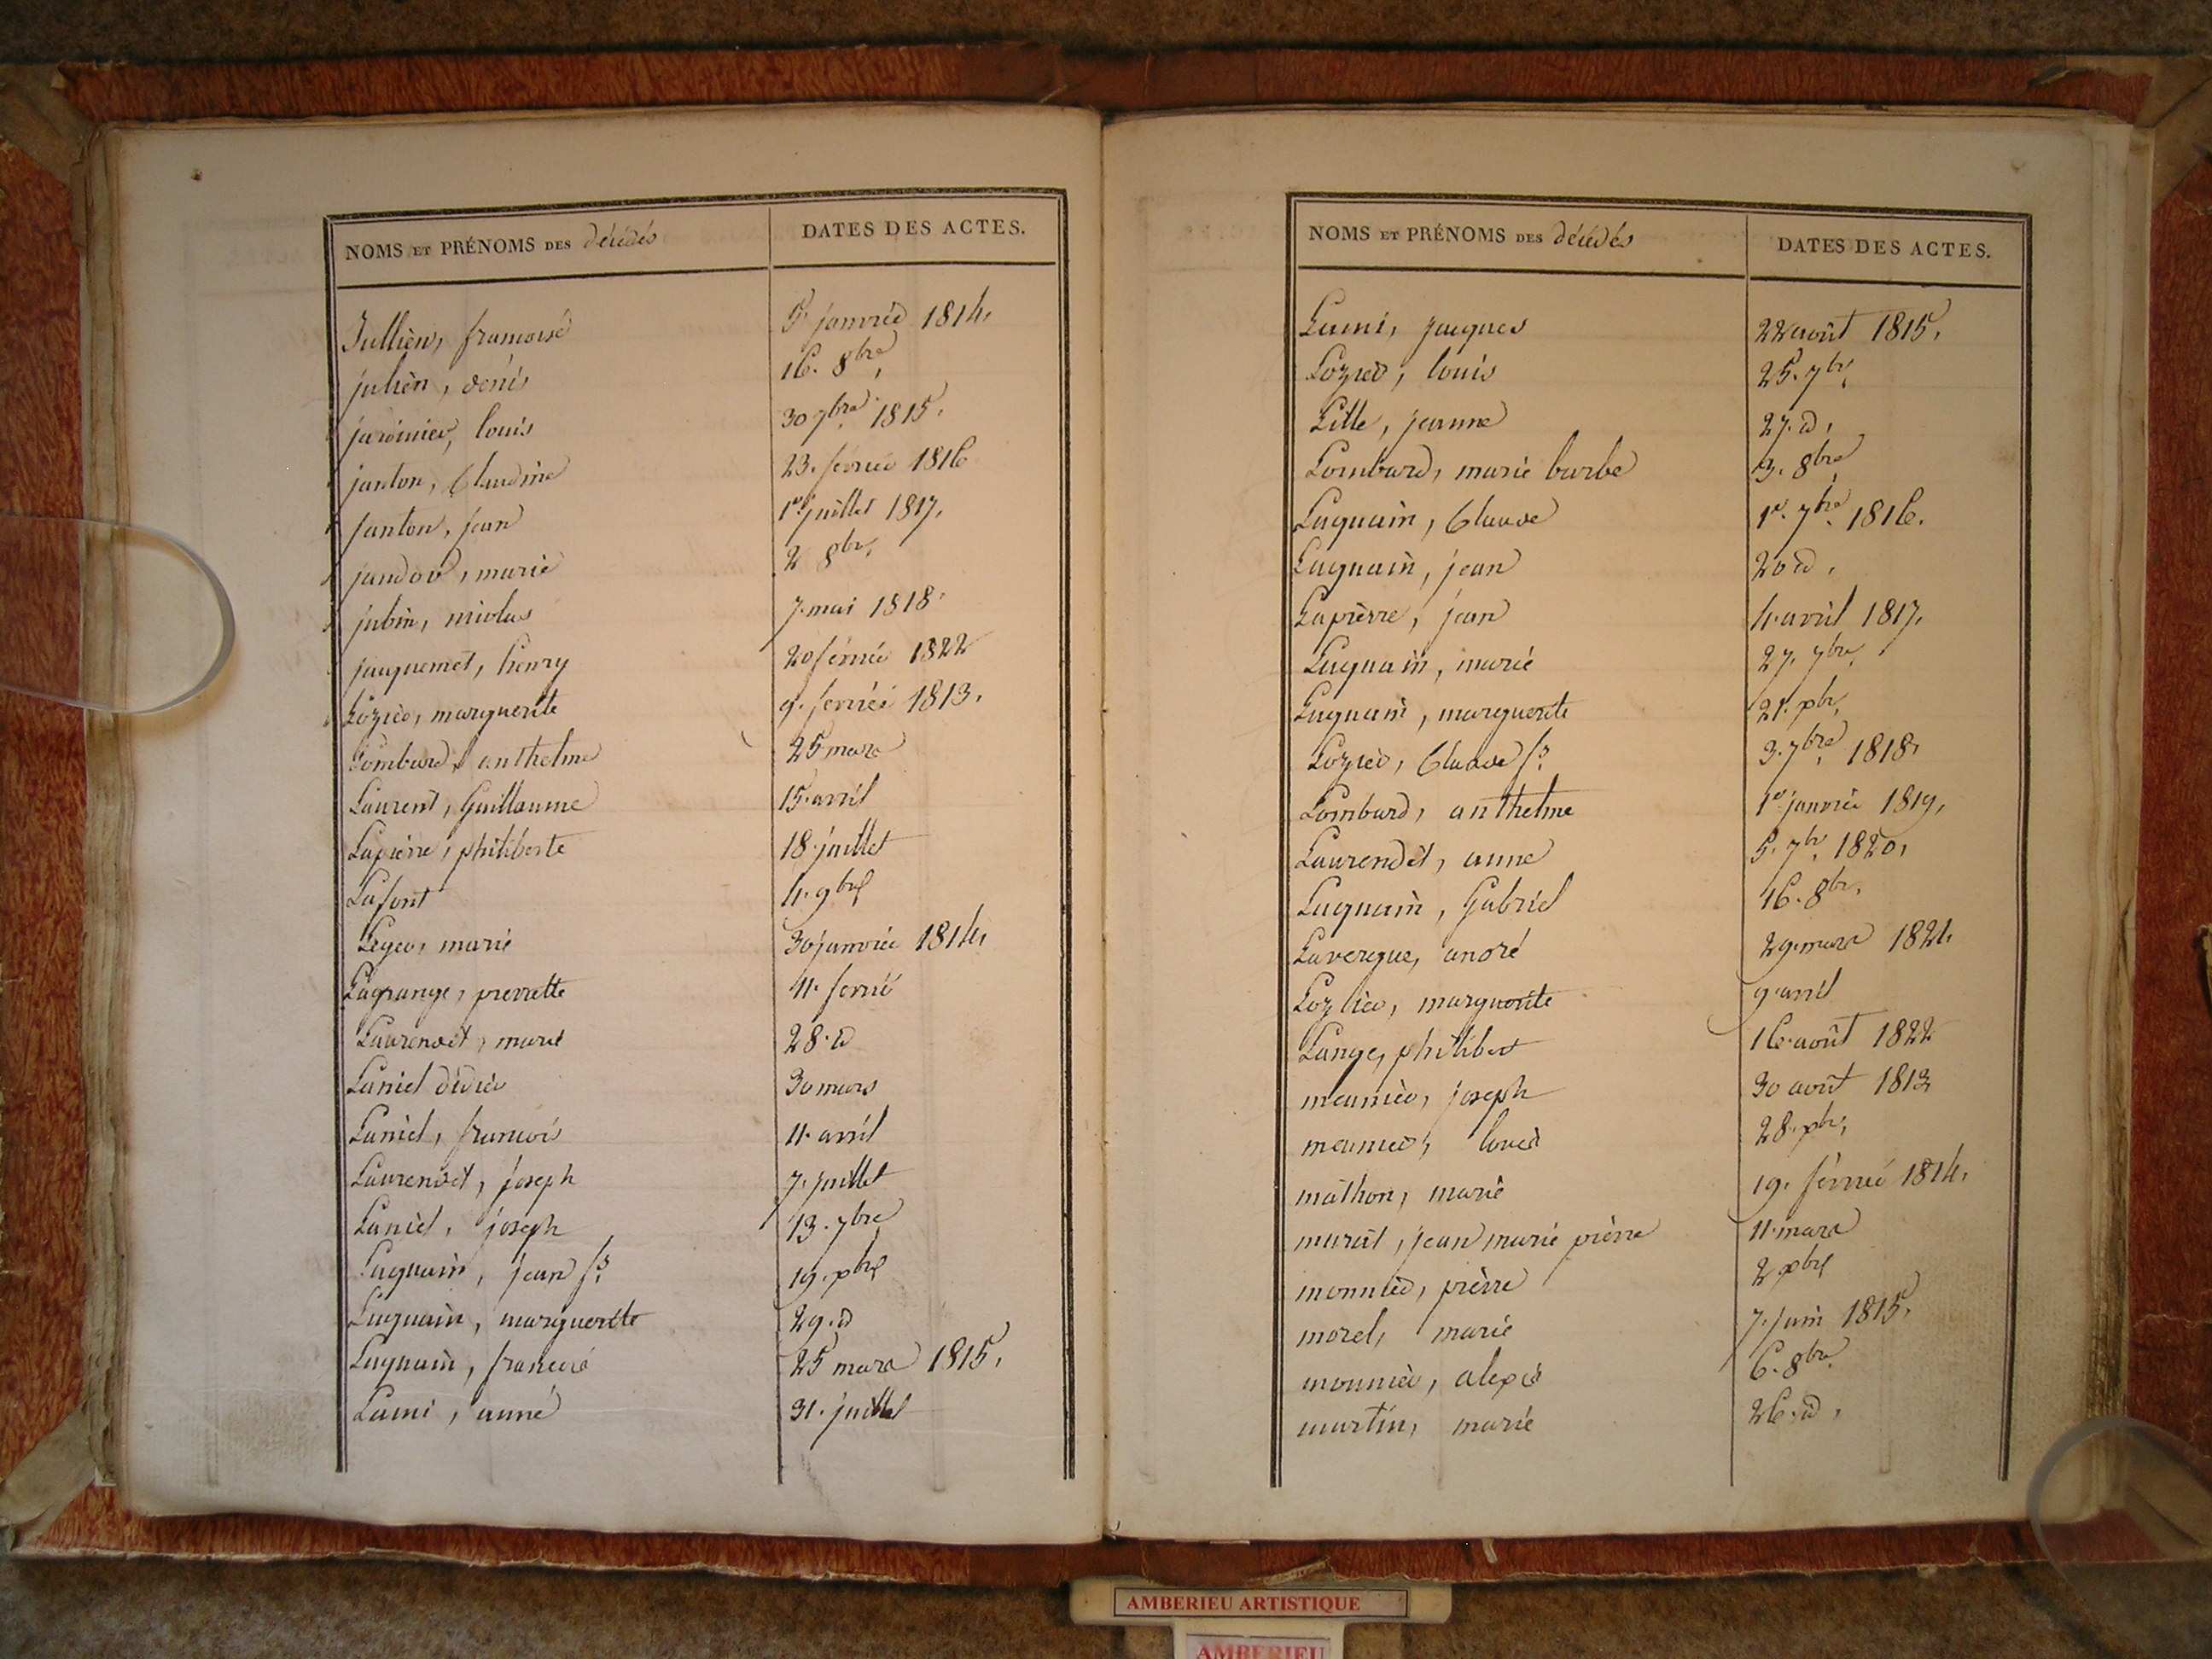 NOMS ET PRÉNOMS DES décédés DATES DES ACTES.
Jullien, francoise 5 janvier 1814.
julien, denis 16. 8bre,
jardinier, louis 30 7bre 1815.
janton, Claudine 23. février 1816
janton, jean 1er juillet 1817.
marie 2 8bre,
jubin, nicolas 7. mai 1818.
jacquemet, henry 20 février 1822
Lozier, marguerite 9. fevrier 1813.
Lombard, anthelme 25 mars
Laurent, Guillaume 15. avril
Lapierre, philiberte 18. juillet
Lafont 4. 9bre
Leger, marie 30 janvier 1814.
Lagrange, pierrette 11. fevrier
Laurendet, marie 28. d
Laniel didier 30 mars
Laniel, francois 11. avril
Laurendet, joseph 7. juillet
Laniel, joseph 13. 7bre
Luquain, jean fs 19. xbre
Luquain, marguerite 29. d
Luquain, francois 25 mars 1815.
Lami, anne 31. juillet
NOMS ET PRÉNOMS DES décédés DATES DES ACTES.
Lami, jacques 22 août 1815.
Lozier, louis 25. 7bre,
Lille, jeanne 27. d,
Lombard, marie barbe 3. 8bre
Luquain, Claude 1er. 7bre. 1816.
Luquain, jean 20 d,
Lapierre, jean 4. avril 1817.
Luquain, marie 27. 7bre,
Luquain, marguerite 21. xbre,
Lozier, Claude fs. 3. 7bre, 1818.
Lombard, anthelme 1er janvier 1819,
Laurendet, anne 5. 7bre, 1820,
Luquain, Gabriel 16. 8bre,
Lavergne, andré 29. mars 1821.
Lozier, marguerite 9. avril
Lange, philibert 16. août 1822
meunier, joseph 30 août 1813
meunier, 28. xbre,
mathon, marie 19. février 1814.
murat, jean marie pierre 11. mars
monnier, pierre 2 xbre
morel, marie 7. juin 1815.
monnier, alexis 6. 8bre.
martin, marie 26. d,
AMBERIEU ARTISTIQUE
AMBERIEU